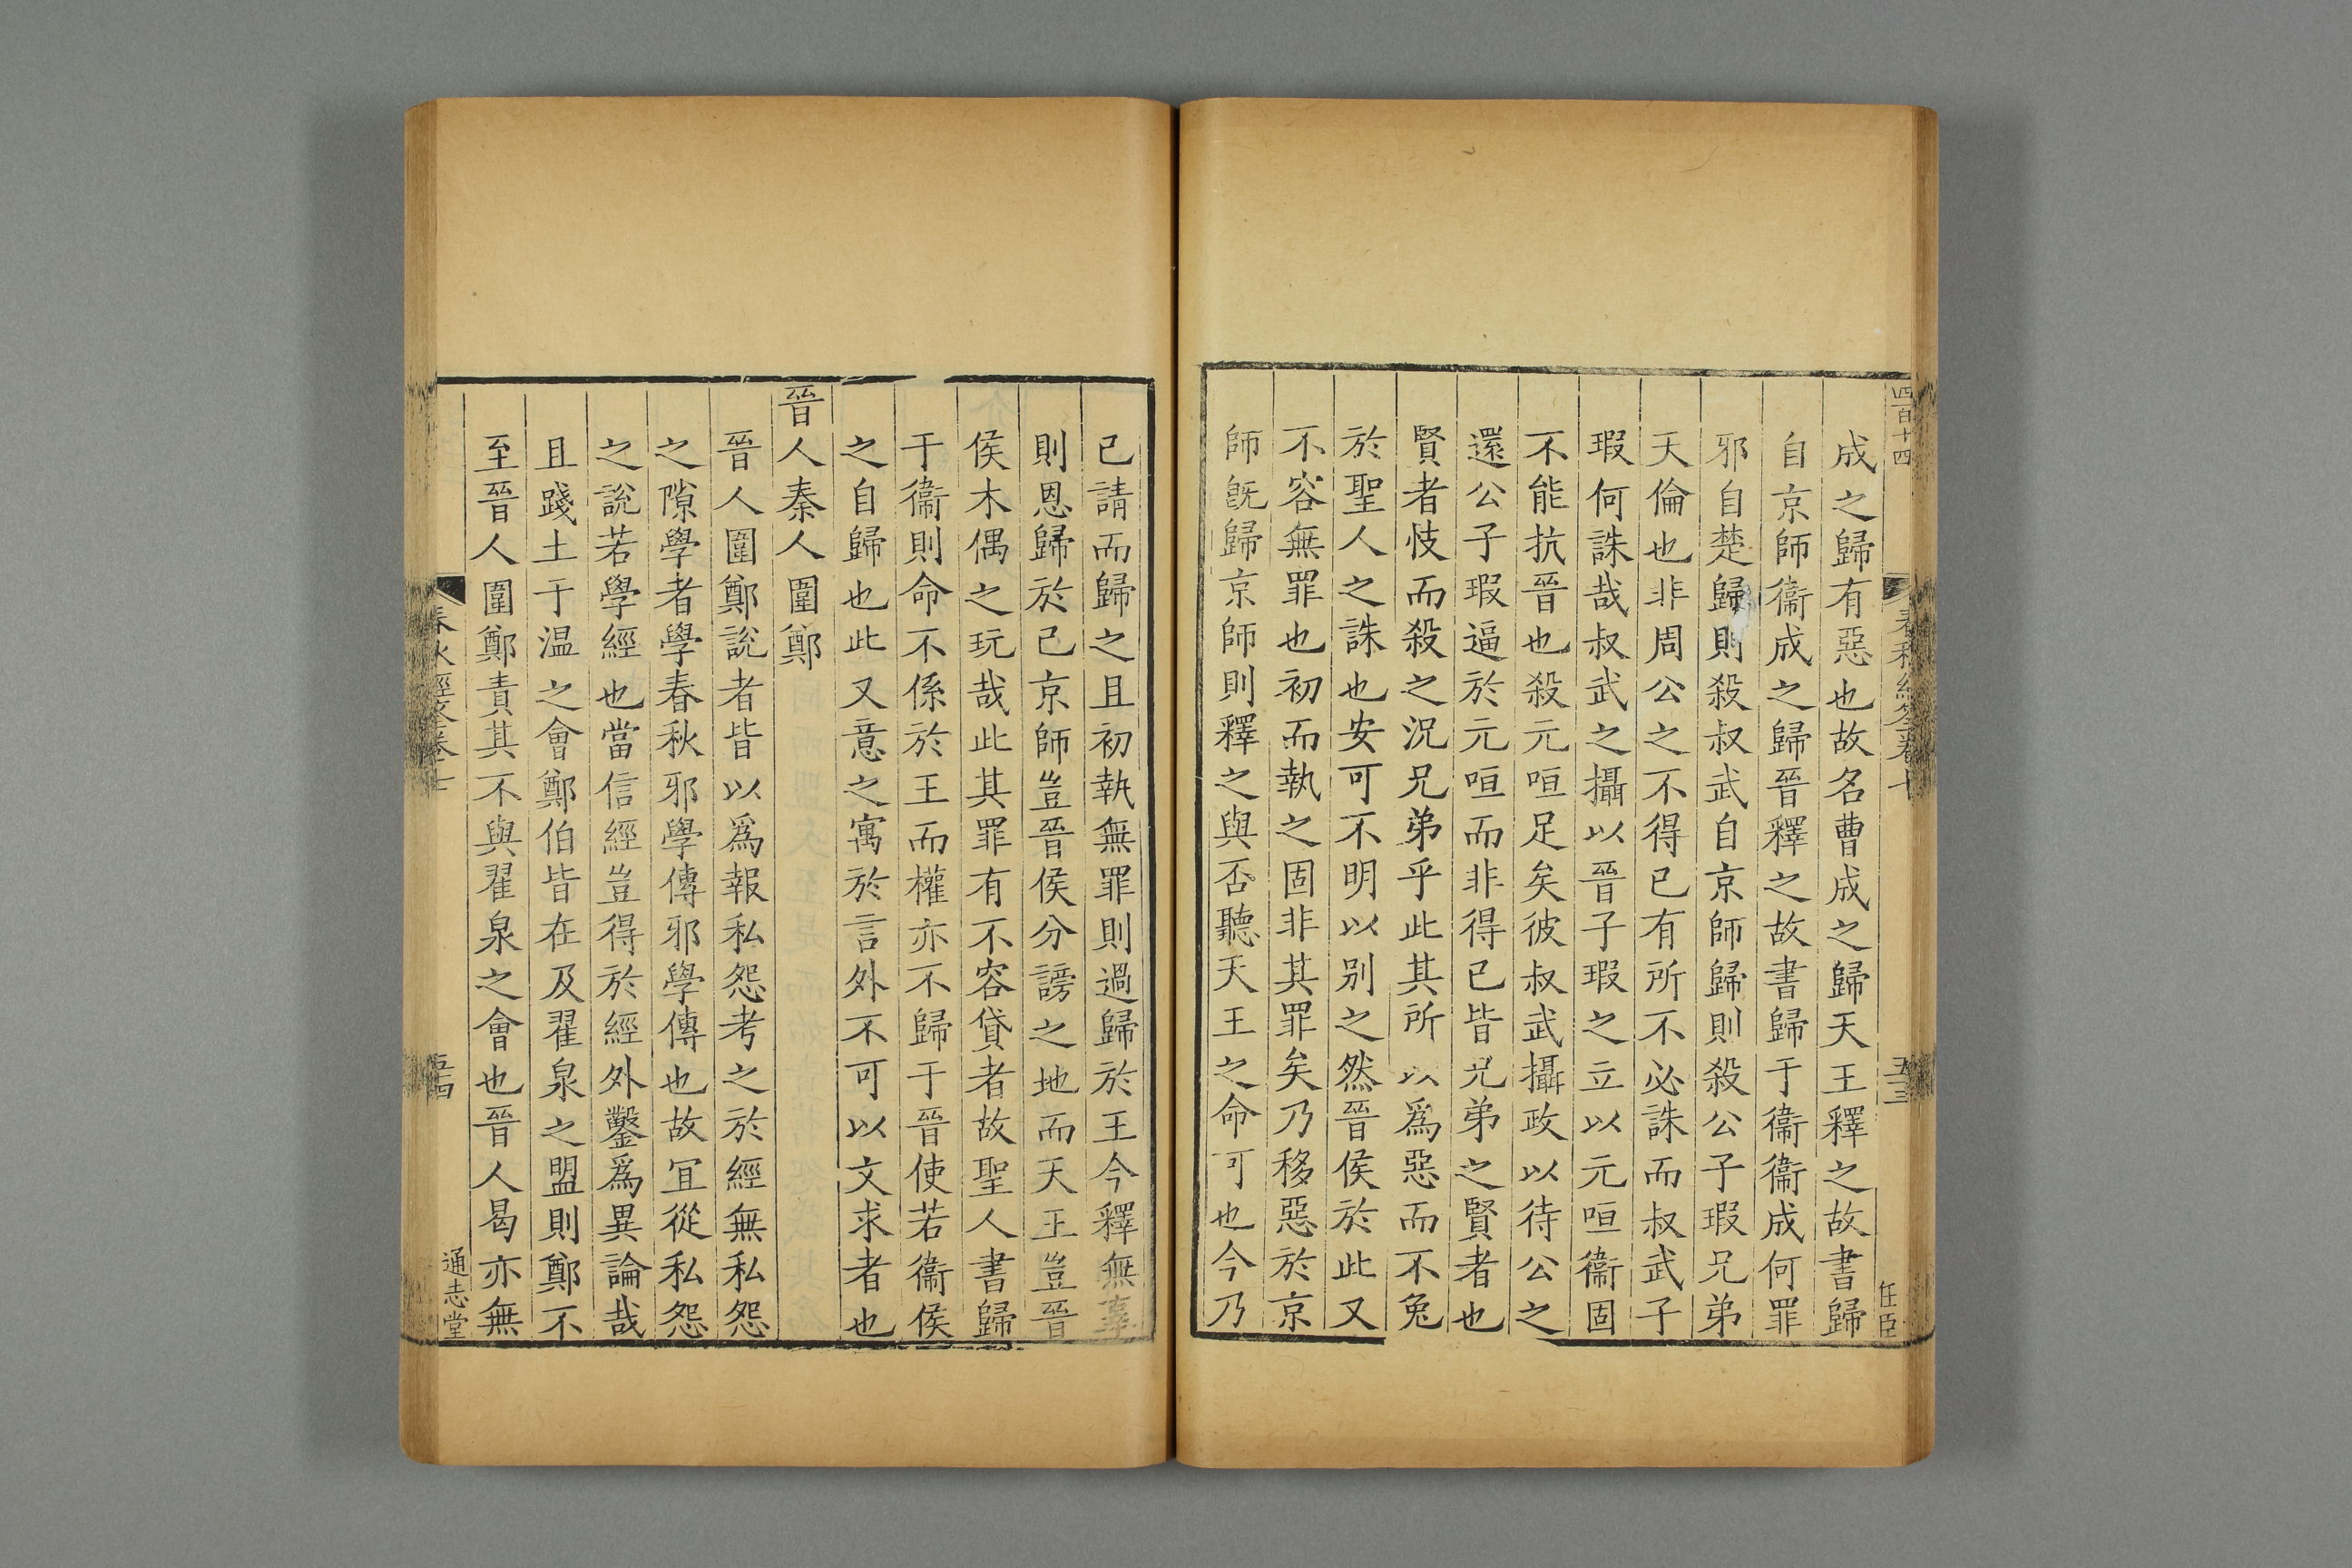 四百十四
春秋經筌卷十
五三
任臣
成之歸有惡也故名曹成之歸天王釋之故書歸
自京師衞成之歸晉釋之故書歸于衞衞成何罪
邪自楚歸則殺叔武自京師歸則殺公子瑕兄弟
天倫也非周公之不得已有所不必誅而叔武子
瑕何誅哉叔武之攝以晉子瑕之立以元咺衞固
不能抗晉也殺元咺足矣彼叔武攝政以待公之
還公子瑕逼於元咺而非得已皆兄弟之賢者也
賢者忮而殺之況兄弟乎此其所以爲惡而不免
於聖人之誅也安可不明以别之然晉侯於此又
不容無罪也初而執之固非其罪矣乃移惡於京
師旣歸京師則釋之與否聽天王之命可也今乃
已請而歸之且初執無罪則過歸於王今釋無辜
則恩歸於已京師豈晉侯分謗之地而天王豈晉
侯木偶之玩哉此其罪有不容貸者故聖人書歸
于衞則命不係於王而權亦不歸于晉使若衞侯
之自歸也此又意之寓於言外不可以文求者也
晉人秦人圍鄭
晉人圍鄭說者皆以爲報私怨考之於經無私怨
之隙學者學春秋邪學傳邪學傳也故宜從私怨
之說若學經也當信經豈得於經外鑿爲異論哉
且踐土于温之會鄭伯皆在及翟泉之盟則鄭不
至晉人圍鄭責其不與翟泉之會也晉人曷亦無
春秋經筌卷十
五四
通志堂